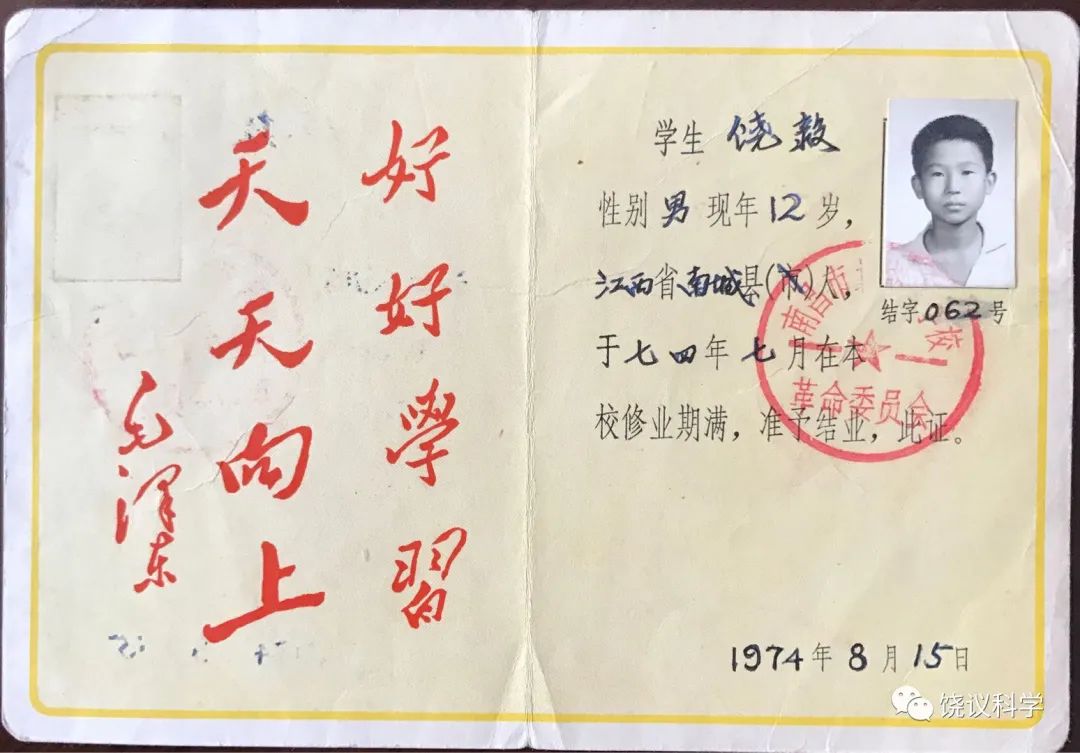 好好學習
天天向上
毛泽东
学生 饶毅
性别 男 现年 12 岁，
江西省南城县(市)人，
于七四年七月在本
校修业期满，准予结业，此证。
结字062号
南昌市 校
革命委员会
1974年8月15日
饶议科学